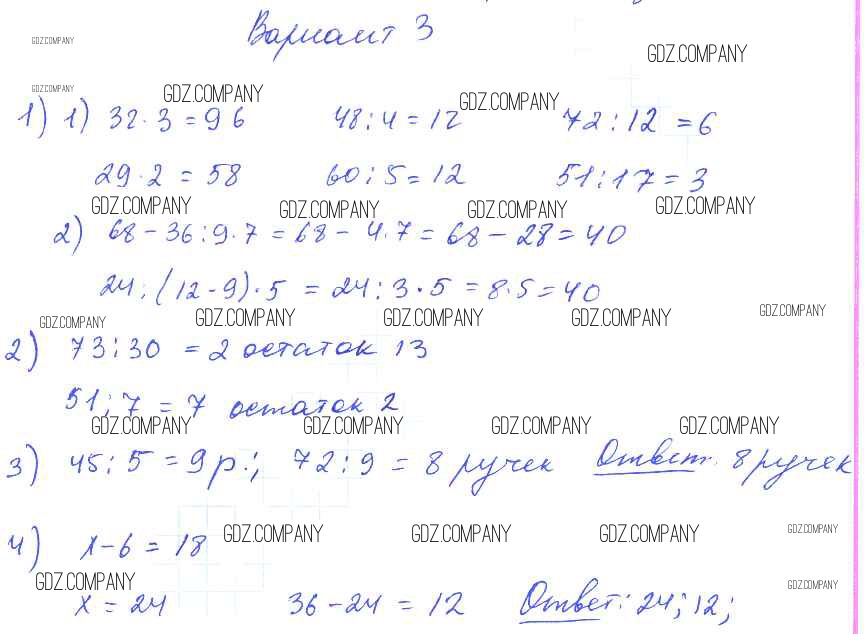 Вариант 3
GDZ.COMPANY GDZ.COMPANY
GDZ.COMPANY GDZ.COMPANY GDZ.COMPANY
1) 1) 32·3=96 48:4=12 72:12=6
29·2=58 60:5=12 51:17=3
GDZ.COMPANY GDZ.COMPANY GDZ.COMPANY GDZ.COMPANY
2) 68-36:9·7=68-4·7=68-28=40
24:(12-9)·5=24:3·5=8·5=40
GDZ.COMPANY GDZ.COMPANY GDZ.COMPANY GDZ.COMPANY GDZ.COMPANY
2) 73:30=2 остаток 13
51:7=7 остаток 2
GDZ.COMPANY GDZ.COMPANY GDZ.COMPANY GDZ.COMPANY
3) 45:5=9р.; 72:9=8 ручек Ответ: 8 ручек
GDZ.COMPANY GDZ.COMPANY GDZ.COMPANY GDZ.COMPANY
4) x-6=18
GDZ.COMPANY GDZ.COMPANY
x=24 36-24=12 Ответ: 24; 12;